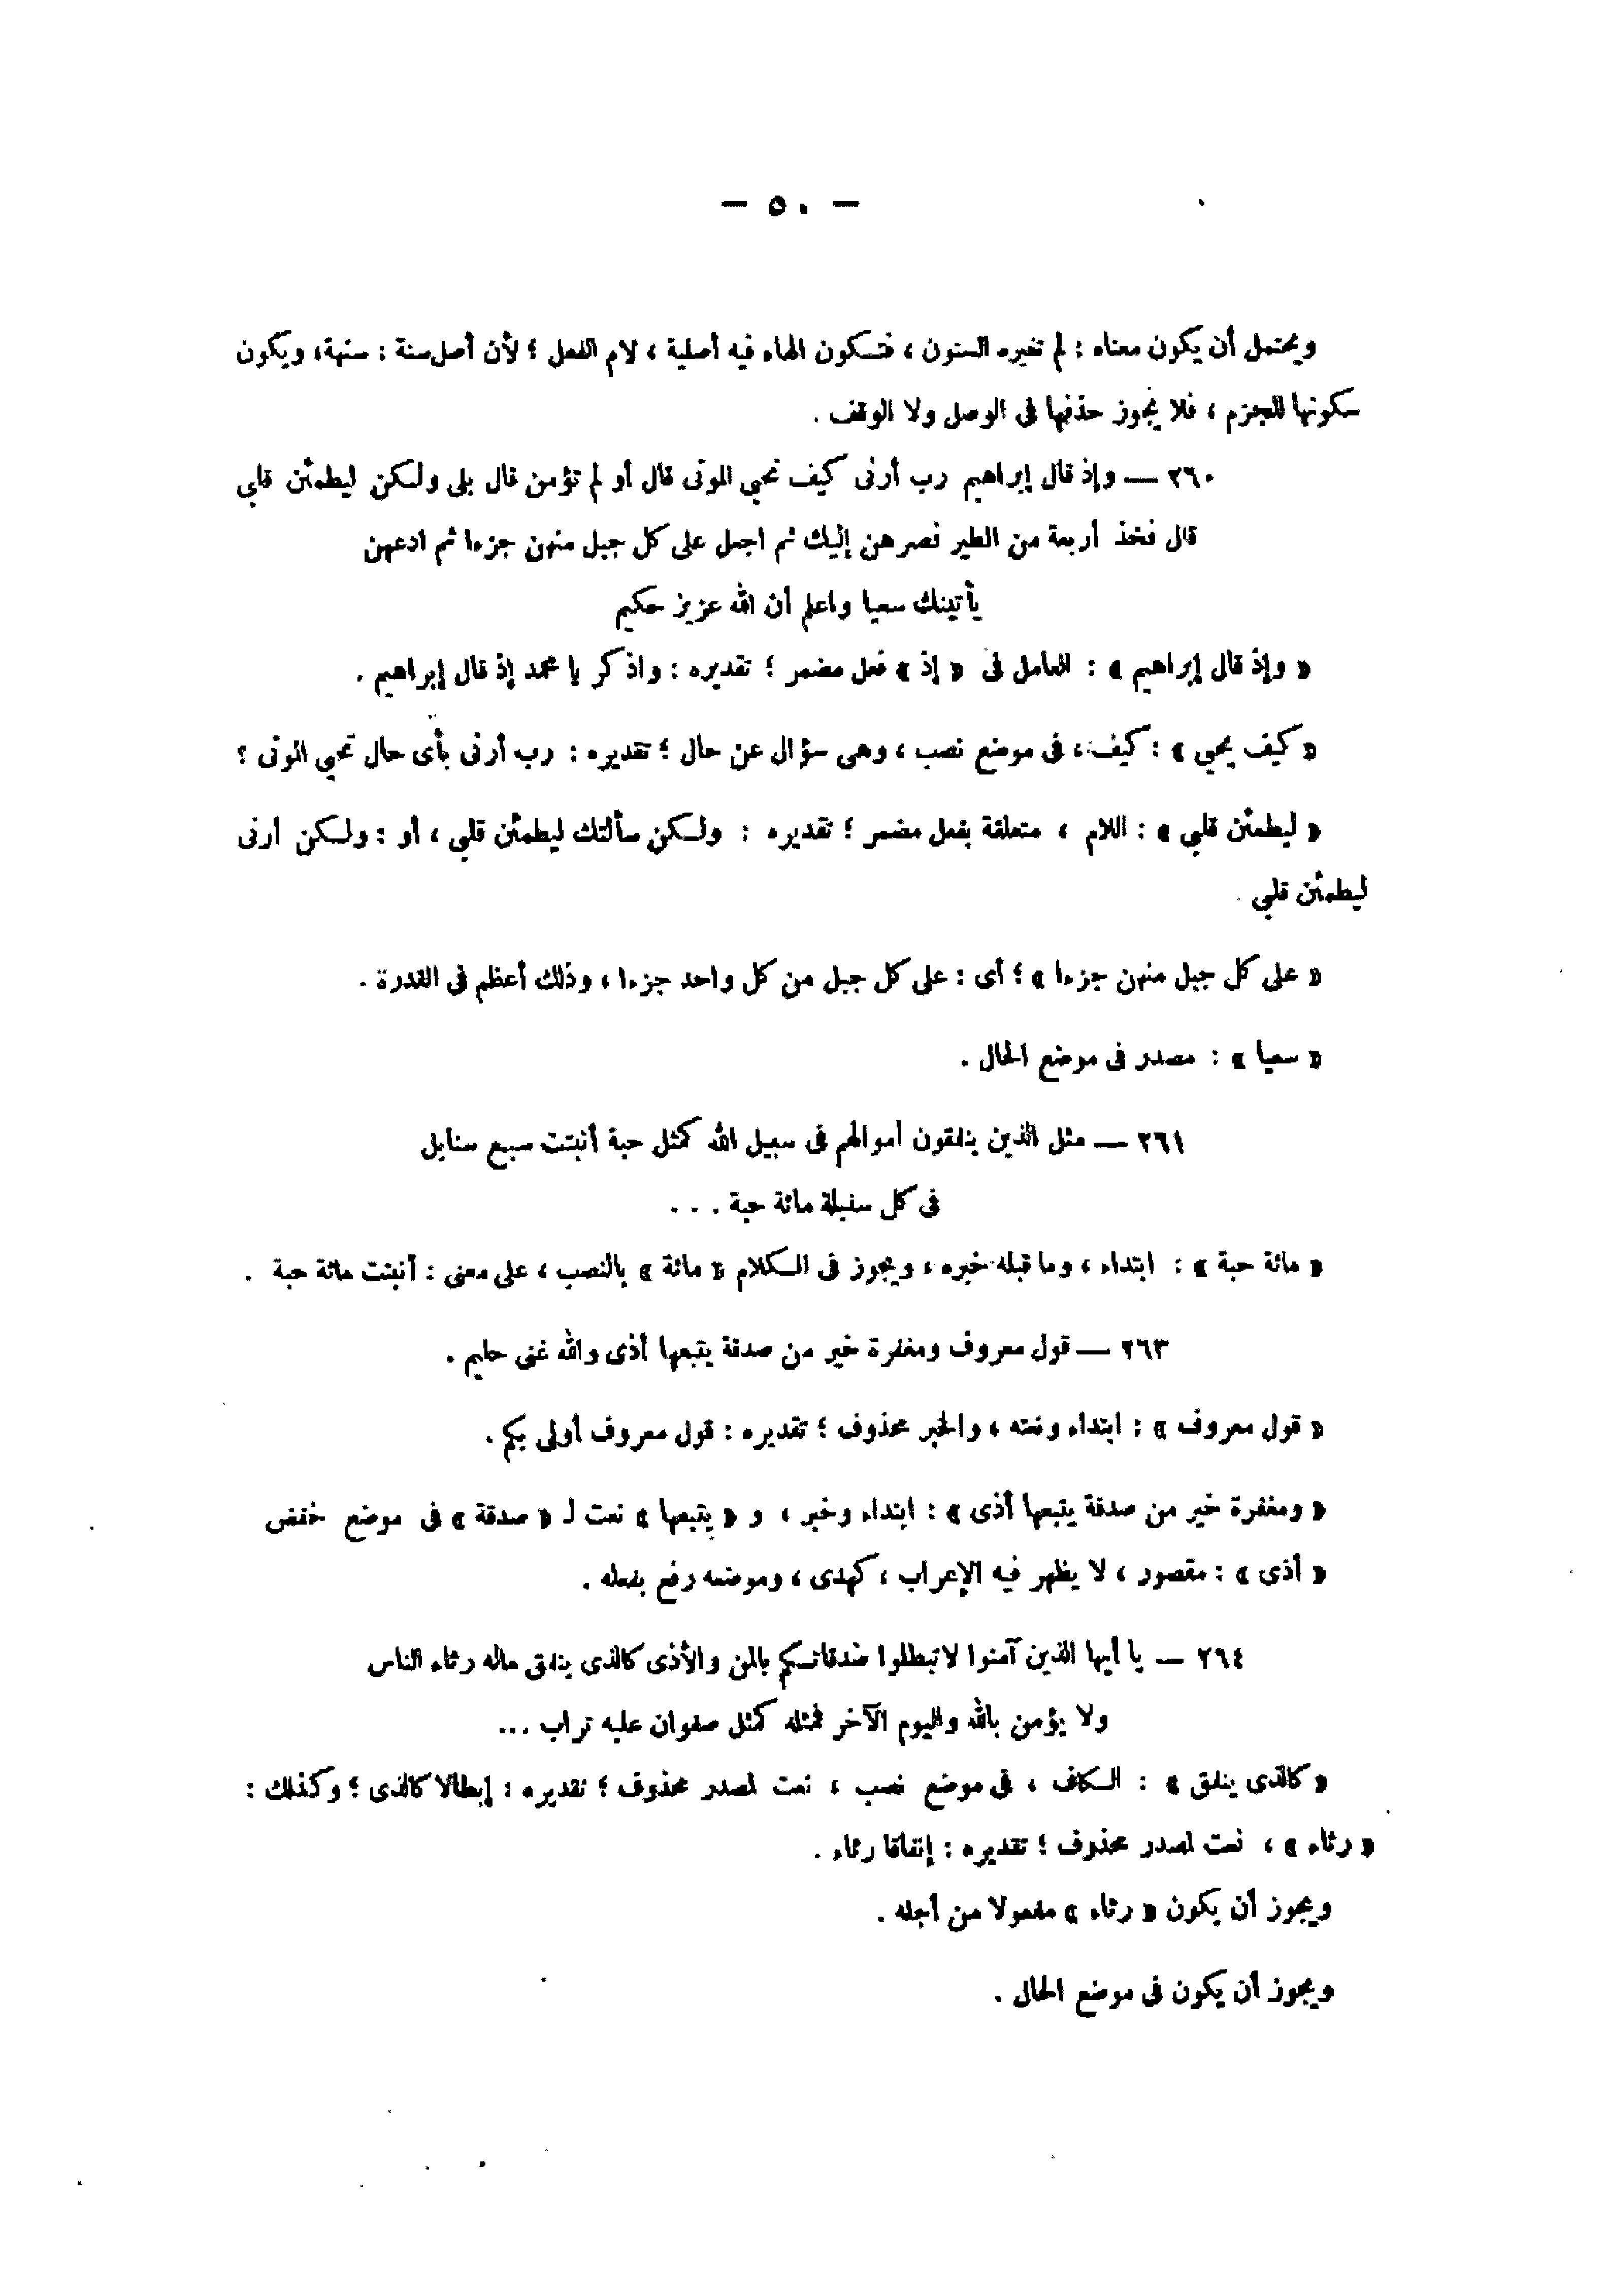 — ٥٠ —
ويحتمل أن يكون معناه : لم تغيره السنون ، فتكون الهاء فيه أصلية ، لام الفعل ؛ لأن أصل سنة : سنهة، ويكون
سكونها للجزم ، فلا يجوز حذفها فى الوصل ولا الوقف .
٢٦٠ — وإذ قال إبراهيم رب أرنى كيف تحيى الموتى قال أو لم تؤمن قال بلى ولكن ليطمئن قلبى
قال فخذ أربعة من الطير فصرهن إليك ثم اجعل على كل جبل منهن جزءا ثم ادعهن
يأتينك سعيا واعلم أن الله عزيز حكيم
« وإذ قال إبراهيم » : العامل فى « إذ » فعل مضمر ؛ تقديره : واذكر يا محمد إذ قال إبراهيم .
« كيف يحيى » : كيف ، فى موضع نصب ، وهى سؤال عن حال ؛ تقديره : رب أرنى بأى حال تحيى الموتى ؟
« ليطمئن قلبى » : اللام ، متعلقة بفعل مضمر ؛ تقديره : ولكن سألتك ليطمئن قلبى ، أو : ولكن أرنى
ليطمئن قلبى .
« على كل جبل منهن جزءا » ؛ أى : على كل جبل من كل واحد جزءا ، وذلك أعظم فى القدرة .
« سعيا » : مصدر فى موضع الحال .
٢٦١ — مثل الذين ينفقون أموالهم فى سبيل الله كمثل حبة أنبتت سبع سنابل
فى كل سنبلة مائة حبة . . .
« مائة حبة » : ابتداء ، وما قبله خبره ، ويجوز فى الكلام « مائة » بالنصب ، على معنى : أنبتت مائة حبة .
٢٦٣ — قول معروف ومغفرة خير من صدقة يتبعها أذى والله غنى حليم .
« قول معروف » : ابتداء ونعته ، والخبر محذوف ؛ تقديره : قول معروف أولى بكم .
« ومغفرة خير من صدقة يتبعها أذى » : ابتداء وخبر ، و « يتبعها » نعت لـ « صدقة » فى موضع خفض
« أذى » : مقصور ، لا يظهر فيه الإعراب ، كهدى ، وموضعه رفع بفعله .
٢٦٤ — يا أيها الذين آمنوا لا تبطلوا صدقاتكم بالمن والأذى كالذى ينفق ماله رئاء الناس
ولا يؤمن بالله واليوم الآخر فمثله كمثل صفوان عليه تراب ...
« كالذى ينفق » : الكاف ، فى موضع نصب ، نعت لمصدر محذوف ؛ تقديره : إبطالا كالذى ؛ وكذلك :
« رئاء » ، نعت لمصدر محذوف ؛ تقديره : إنفاقا رئاء .
ويجوز أن يكون « رئاء » مفعولا من أجله .
ويجوز أن يكون فى موضع الحال .